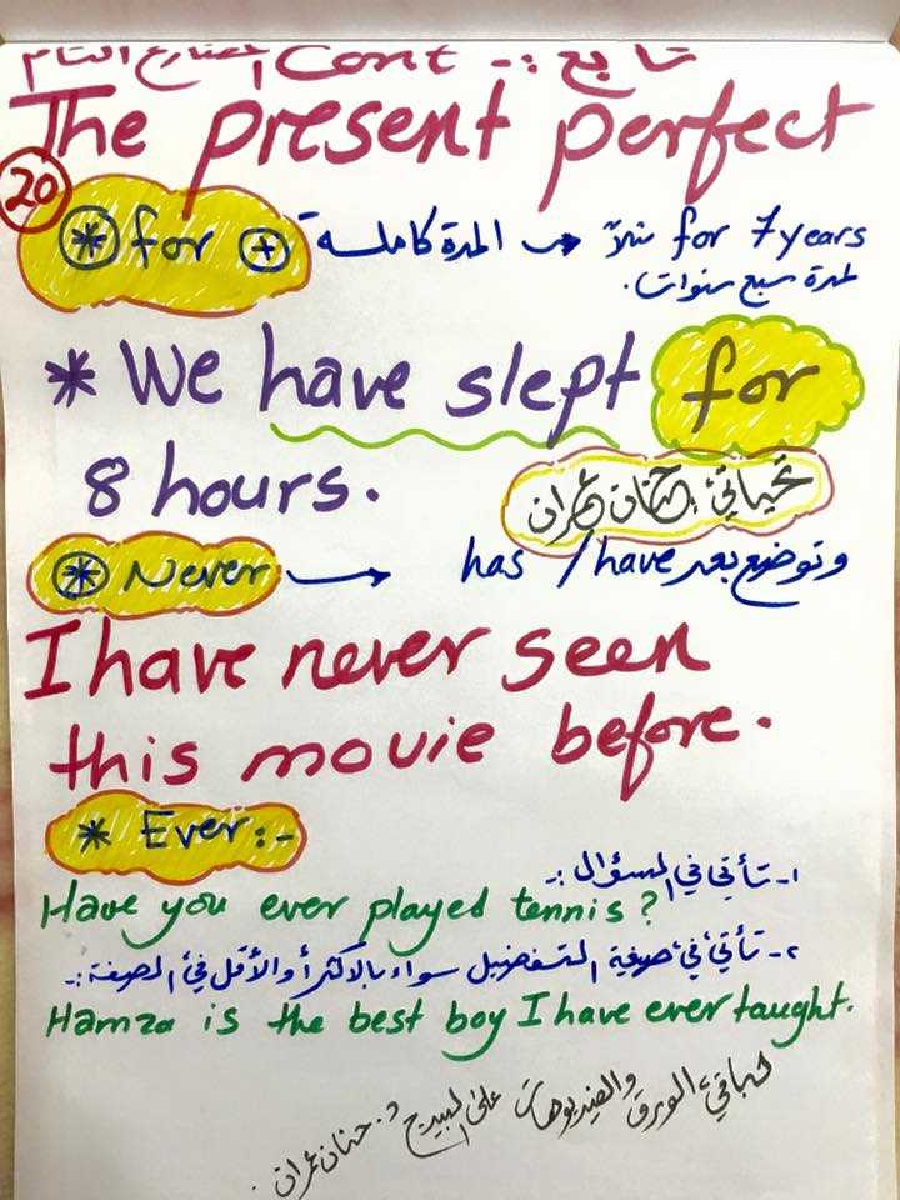 تابع :- Cont المضارع التام
The present perfect
20
* for + المدة كاملة → for 7 years
لمدة سبع سنوات.
* We have slept for
8 hours.
تحياتي، حنان عمران
* Never → has / have وتوضع بعد
I have never seen
this movie before.
* Ever:-
١- تأتي في السؤال :-
Have you ever played tennis?
٢- تأتي في صيغة التفضيل سواء بالأكثر أو الأقل في الصفة :-
Hamza is the best boy I have ever taught.
باقي الورق والفيديوهات على البيدج د. حنان عمران.